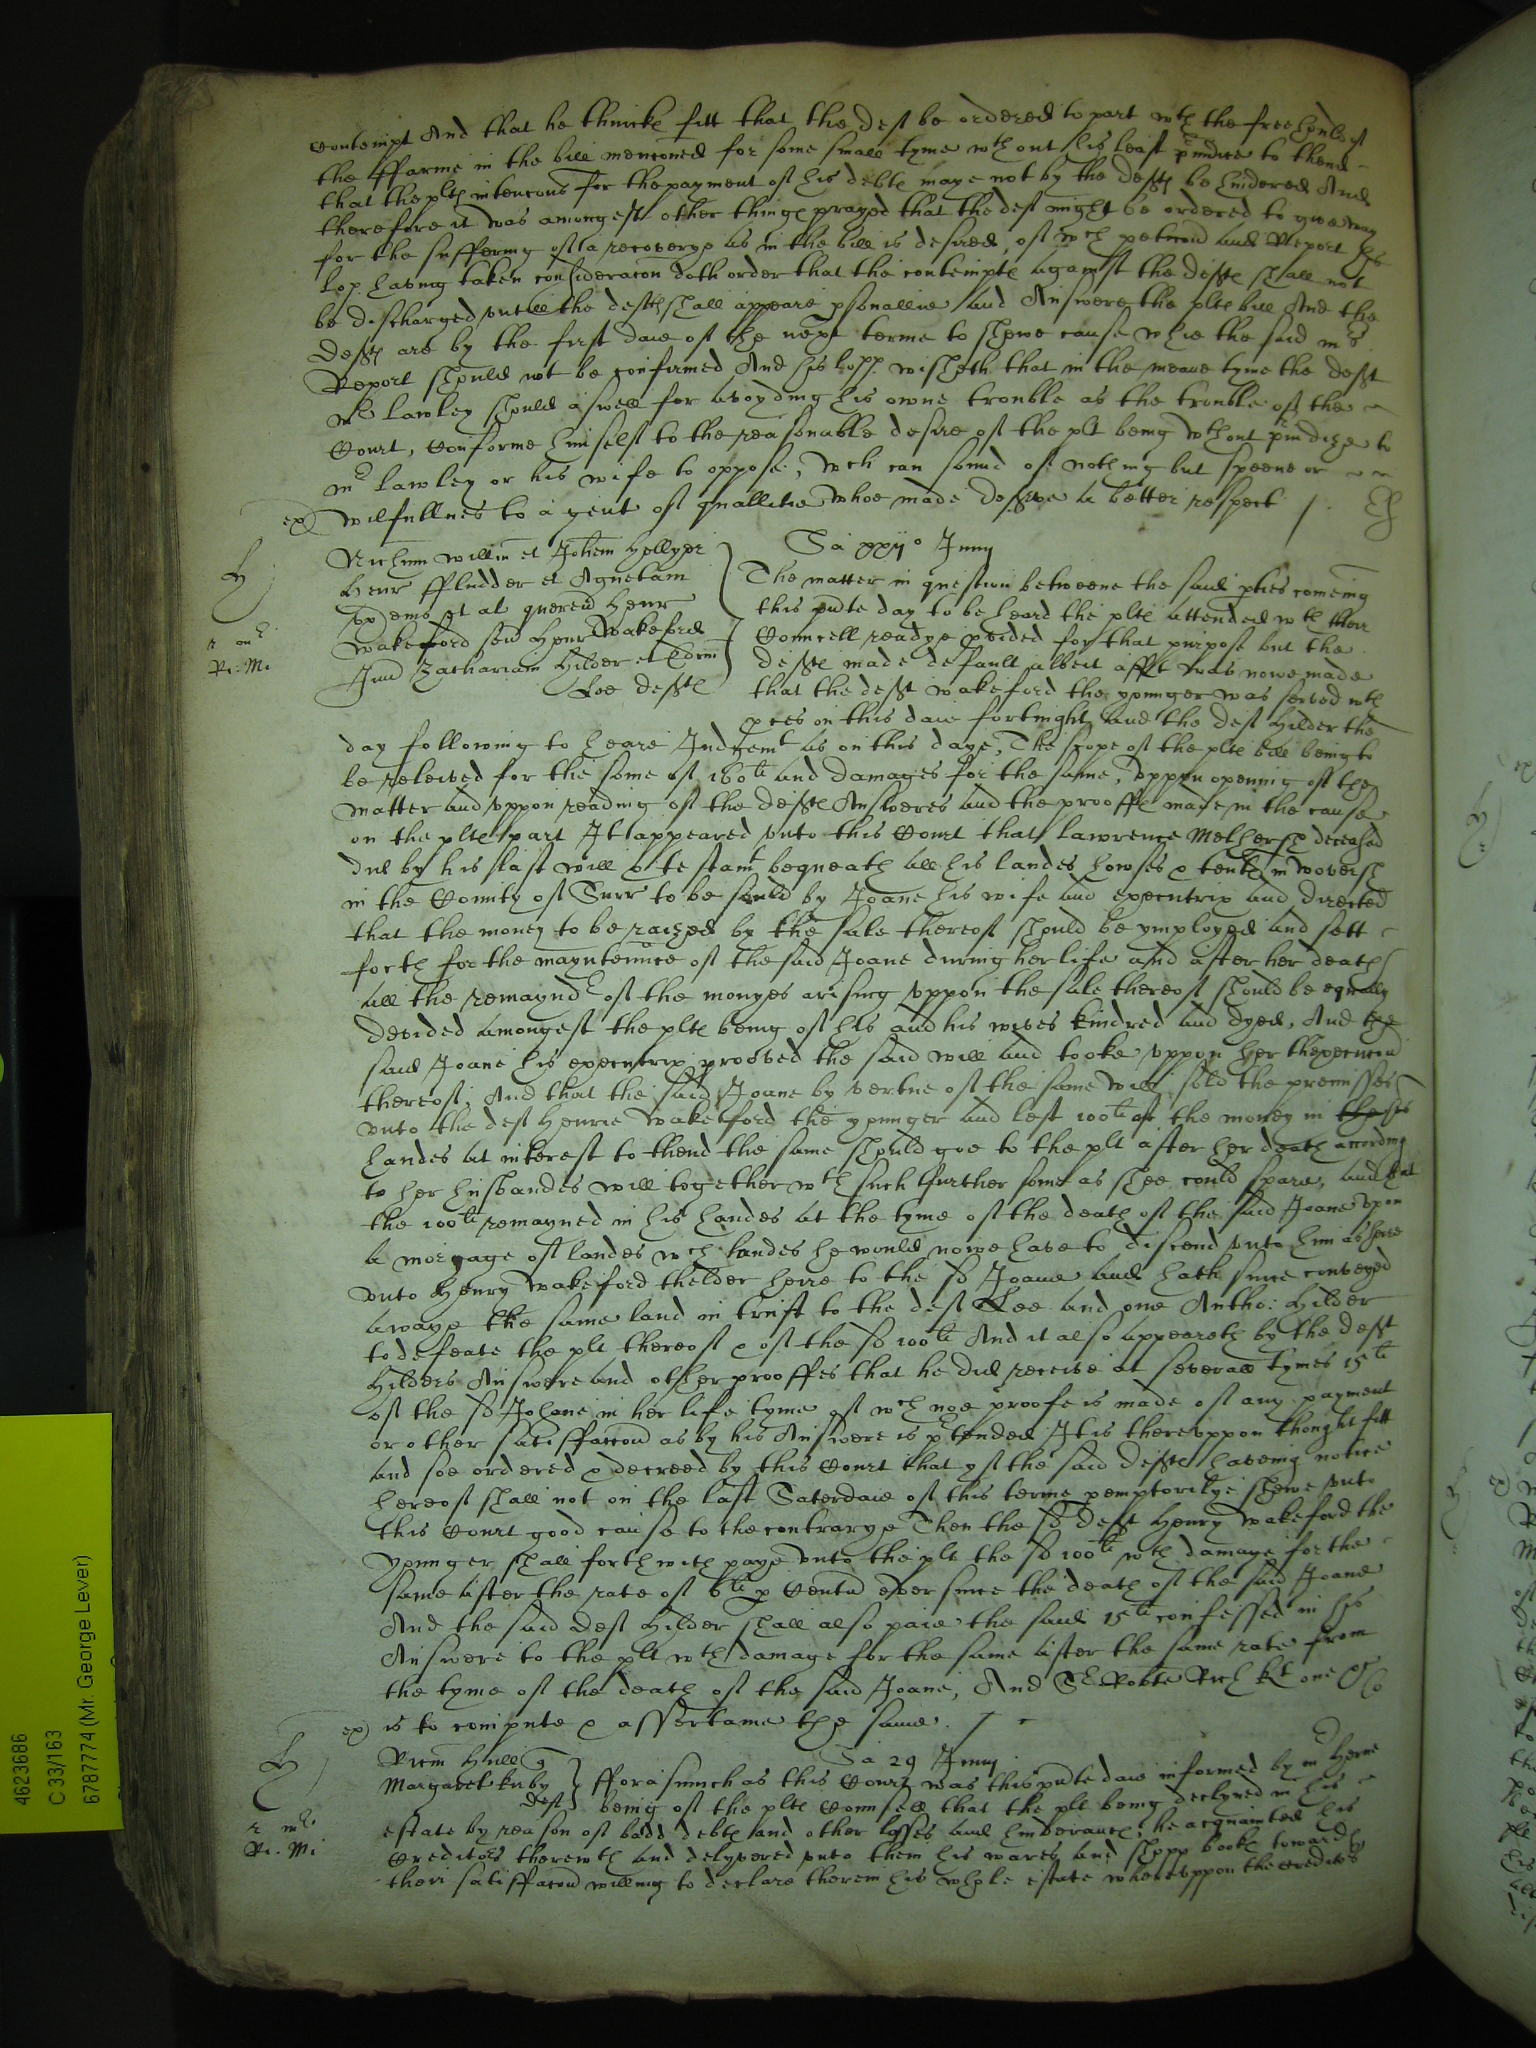 contempt And that he thincke fitt that the deft be ordered to part wth the freehould of
the ffarme in the bill menconed for some small tyme wthout his least preiudice to thend
that the plts intencons for the payment of his debte maye not by the defts be hindered And
therefore it was amongest other things prayed that the deft might be ordered to give way
for the suffering of a recoverye as in the bill is desired, of wch peticon and Report his
Lop. having taken consideracon doth order that the contempte against the defts shall not
be discharged untill the defts shall appeare psonallie and Answere the plts bill And the
Defts are by the first daie of the next terme to shewe cause whie the said mrs
Report should not be confirmed And his lopp. wisheth that in the meane tyme the deft
Mr Lawley should aswell for avoyding his owne trouble as the trouble of the
Court, conforme himself to the reasonable desire of the plt being wthout preiudice to
mr Lawley or his wife to oppose, wch can sound of nothing but spleene or
ex wilfullnes to a gent of quallitie whoe made deserve a better respect /.
Sa xxijo Junij
Richum Willm et Johem Hellyer
Henr ffludder et Agnetam
uxem eius et al quer vs Henr
Wakeford sen Henr Wakeford
Jun Zachariam Hilder et Edrm
Lee defts
r mr
Ri: Mi
The matter in question betweene the said pties comeing
this pnte day to be heard the plts attended wth their
Councell readye pvided for that purpose but the
defts made default albeit afft was nowe made
that the deft Wakeford the younger was served wth
pces on this daie fortnight and the deft Hilder the
day following to heare Judgemt as on this daye, The scope of the plts bill being to
be releived for the some of 160li and damages for the same, Uppon opening of the
matter and uppon reading of the defts Answeres and the prooffe made in the cause
on the plts part It appeared unto this Court that Lawrence deceased
did by his last will & testamt bequeath all his landes howses & tents in
in the County of Surr to be sould by Joane his wife and executrix and directed
that the money to be raized by the sale thereof should be ymployed and sett
forth for the mayntennce of the said Joane during her life and after her death
all the remaynder of the monyes arising uppon the sale thereof should be equally
devided amongest the plts being of his and his wives kindred and dyed, And the
said Joane his executrix prooved the said will and tooke uppon her thexecucon
thereof, And that the said Joane by vertue of the same will sold the premisses
unto the deft Henrie Wakeford the younger and left 100li of the money in his
handes at interest to thend the same should goe to the plt after her death according
to her husbandes will together wth such further some as shee could spare, and that
the 100li remayned in his handes at the tyme of the death of the said Joane upon
a morgage of landes wch landes he would nowe have to discend unto him as heire
unto Henry Wakeford thelder heire to the sd Joane and hath since conveyed
awaye the same land in trust to the deft Lee and one Antho: Hilder
to defeate the plt thereof & of the sd 100li And it also appeareth by the deft
Hilders Answere and other prooffes that he did receive at severall tymes 15li
of the sd Johane in her life tyme of wch noe proofe is made of any payment
or other satisffaccon as by his Answere is ptended It is thereuppon thought fitt
and soe ordered & decreed by this Court that yf the said defts haveing notice
hereof shall not on the last Saterdaie of this terme pemptorilye shewe unto
this Court good cause to the contrarye Then the sd deft Henry Wakeford the
younger shall forthwith paye unto the plt the sd 100li wth damage for the
same after the rate of 6li p Centu ever since the death of the said Joane
And the said deft Hilder shall also paie the said 15li confessed in his
Answere to the plt wth damage for the same after the same rate from
the tyme of the death of the said Joane, And Sr Robte Rich Kt one &c
ex is to compute & assertaine the same. /
Sa 29 Junij
Ricus Hill q
Margaret Kirby
deft
r mr
Ri: Mi
fforasmuch as this Court was this pnte daie informed by mr Herne
being of the plts Councell that the plt being declyned in his
estate by reason of badd debte and other losses and hinderance, he acquainted his
Creditors therewth and delyvered unto them his wares and shopp booke towards
their satisffaccon willing to declare therein his whole estate whereuppon the creditors
4623686
C 33/163
6787774 (Mr. George Lever)